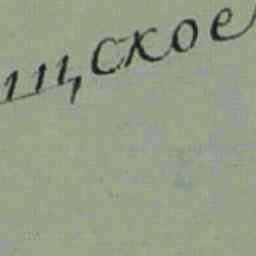 щское